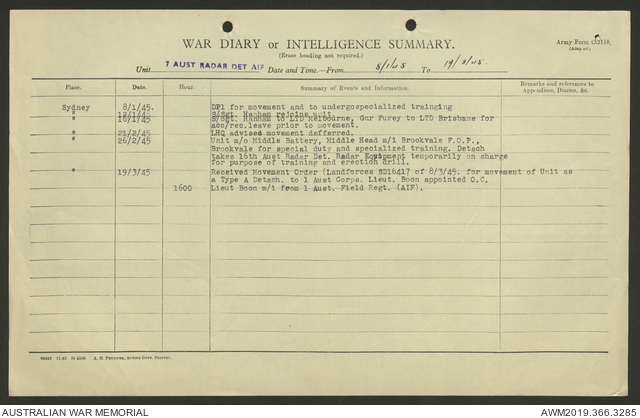 WAR DIARY or INTELLIGENCE SUMMARY.
Army Form C2118.
(Erase heading not required.)
Unit 7 AUST RADAR DET AIF Date and Time.—From 8/1/45 To 19/3/45.
Place. Date. Hour. Summary of Events and Information. Remarks and references to
Appendices, Diaries, &c.
Sydney 8/1/45. DP1 for movement and to undergospecialized trainging
" 12/1/45 S/Sgt. Hanham rejoins unit.
" 16/1/45 S/Sgt. Hanham to LTD Melbourne, Gnr Furey to LTD Brisbane for
acc/rec.leave prior to movement.
" 21/2/45 LHQ advised movement defferred.
" 26/2/45 Unit m/o Middle Battery, Middle Head m/i Brookvale F.O.P.,
Brookvale for special duty and specialized training. Detach
takes 16th Aust Radar Det. Radar Equipment temporarily on charge
for purpose of training and erection drill.
" 19/3/45 Received Movement Order (Landforces SD16417 of 8/3/45. for movement of Unit as
a Type A Detach. to 1 Aust Corps. Lieut. Boon appointed O.C.
1600 Lieut Boon m/i from 1 Aust. Field Regt. (AIF).
AUSTRALIAN WAR MEMORIAL
AWM2019.366.3285